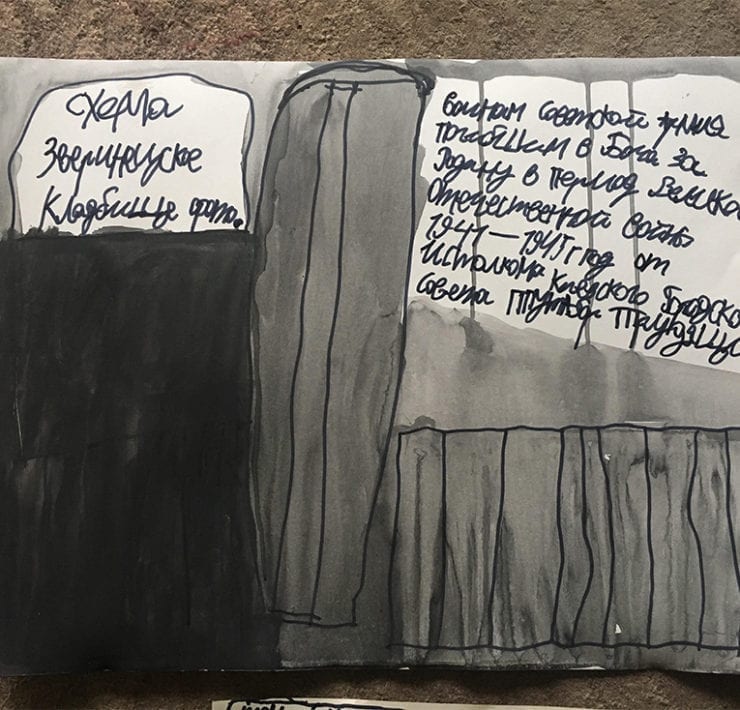 схема
Зверинецкое
кладбище фото.
Воинам Советской Армия
погибшим в за
Родину в период Велико
Отечественной войны
1941 — 1945 год от
Исполкома Киевского Городско
Совета